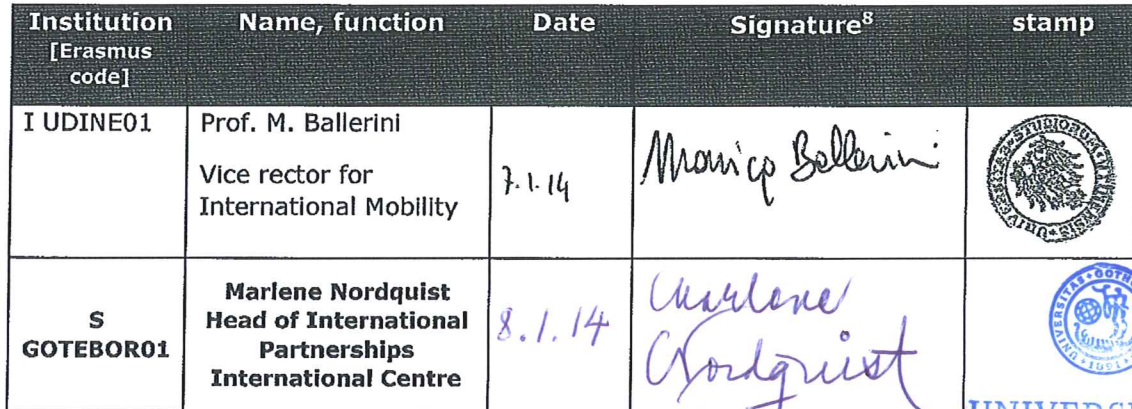 Institution
[Erasmus
code]
Name, function
Date
Signature8
stamp
I UDINE01
Prof. M. Ballerini
Vice rector for
International Mobility
7.1.14
Monica Ballerini
S
GOTEBOR01
Marlene Nordquist
Head of International
Partnerships
International Centre
8.1.14
Marlene
Nordquist